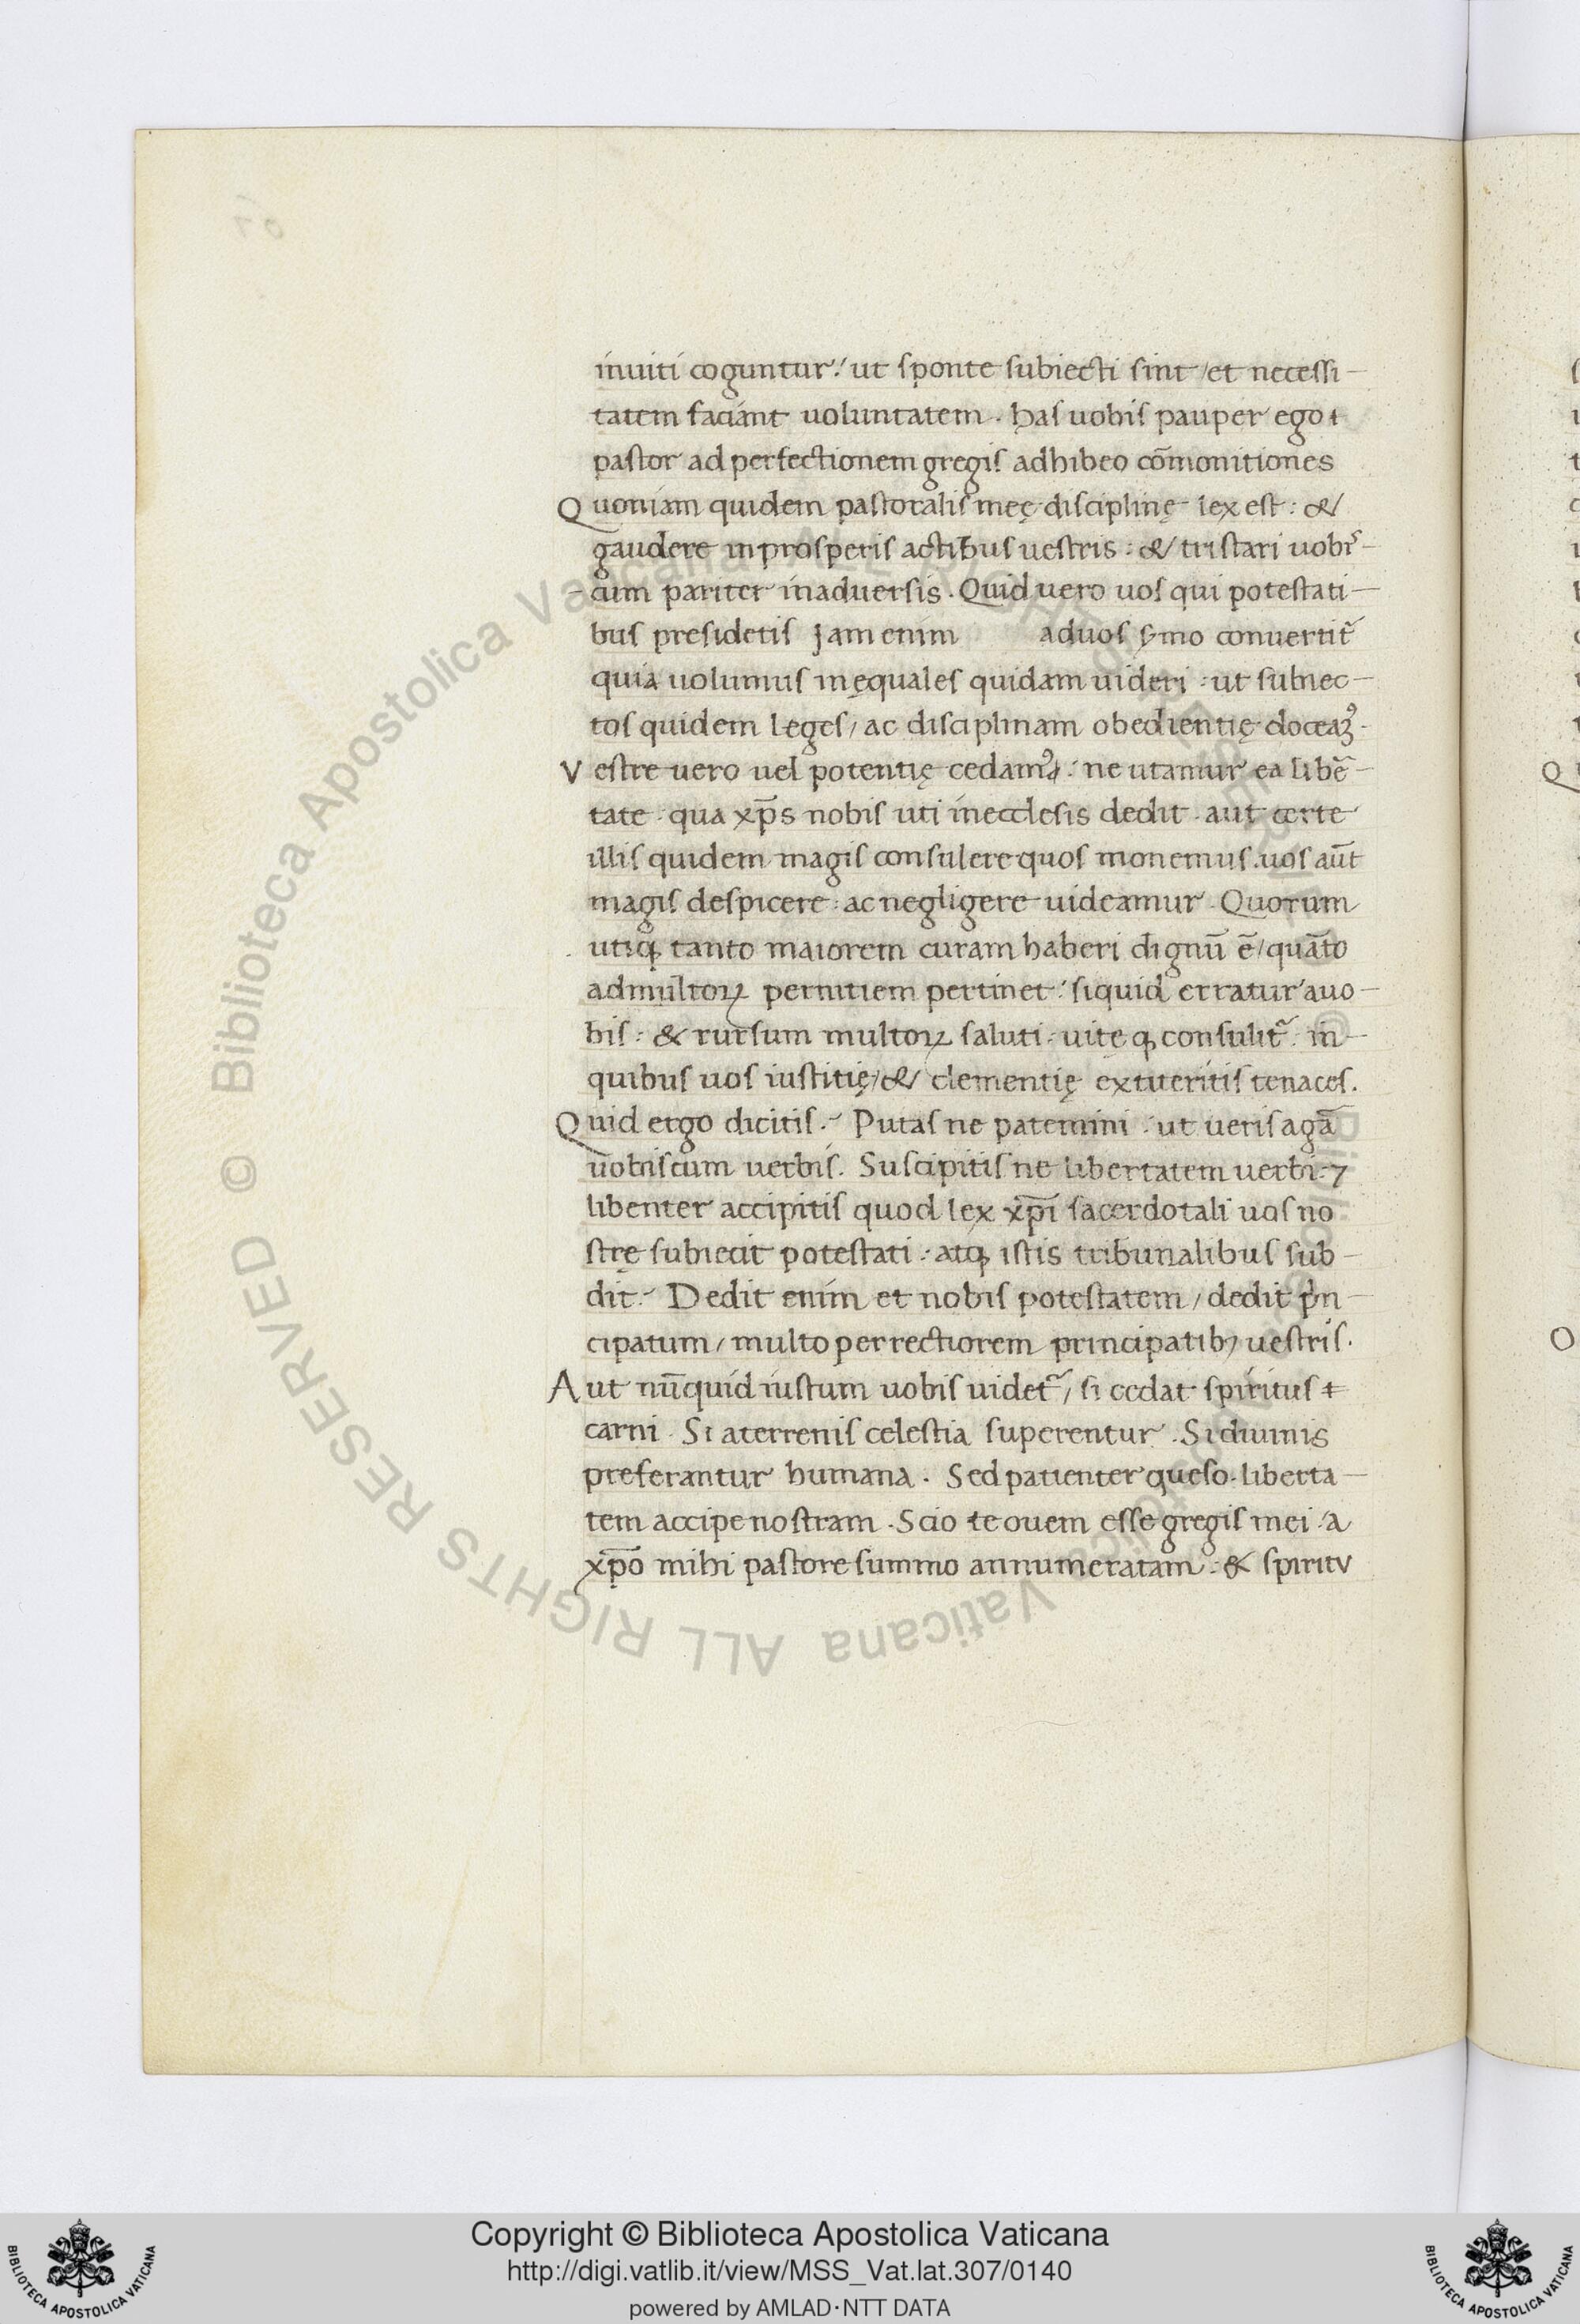 inuiti coguntur: ut sponte subiecti sint / et necessi-
tatem faciant uoluntatem. has uobis pauper ego
pastor ad perfectionem gregis adhibeo cōmonitiones
Quoniam quidem pastoralis meę disciplinę lex est: &
gaudere in prosperis actibus uestris: & tristari uobis-
-cum pariter in aduersis. Quid uero uos qui potestati-
bus presidetis Jam enim ad uos s̨mo conuertit᷑
quia uolumus inęquales quidam uideri: ut subiec-
tos quidem leges / ac disciplinam obedientię doceamꝰ.
Vestre uero uel potentię cedamꝰ: ne utamur ea lib̄e-
tate qua xp̄s nobis uti in ecclesis dedit. aut certe
illis quidem magis consulere quos monemus. uos aūt
magis despicere: ac negligere uideamur. Quorum
utiqꝫ tanto maiorem curam haberi dignū ē / quāto
ad multoꝝ pernitiem pertinet: siquid erratur a uo-
bis: & rursum multoꝝ saluti uitęqꝫ consulit᷑: in
quibus uos iustitię / & clementię extiteritis tenaces.
Quid ergo dicitis. Putas ne patemini: ut ueris agā
uobiscum uerbis. Suscipitis ne libertatem uerbi: ⁊
libenter accipitis quod lex xp̄i sacerdotali uos no
strę subiecit potestati: atqꝫ istis tribunalibus sub-
dit. Dedit enim et nobis potestatem / dedit pͥn-
cipatum / multo perrectiorem principatibꝫ uestris.
Aut nūquid iustum uobis uidet᷑ / si cedat spiritus
carni. Si a terrenis celestia superentur. Si diuinis
preferantur humana. Sed patienter queso liberta-
tem accipe nostram. Scio te ouem esse gregis mei: a
xp̄o mihi pastore summo annumeratam: & spiritu
© Biblioteca Apostolica Vaticana ALL RIGHTS RESERVED
Copyright © Biblioteca Apostolica Vaticana
http://digi.vatlib.it/view/MSS_Vat.lat.307/0140
powered by AMLAD·NTT DATA
BIBLIOTECA APOSTOLICA VATICANA
BIBLIOTECA APOSTOLICA VATICANA